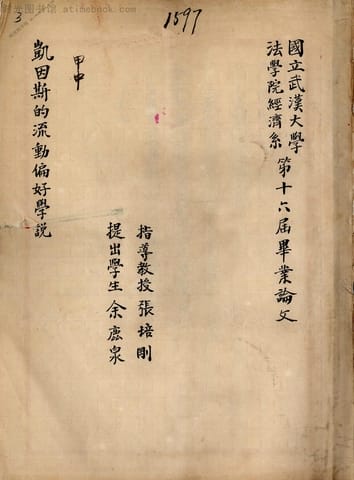 時光图书馆 - atimebook.com
3
1597
國立武漢大學
法學院經濟系
第十六屆畢業論文
指導教授 張培剛
提出學生 余廌泉
甲中
凱因斯的流動偏好學説